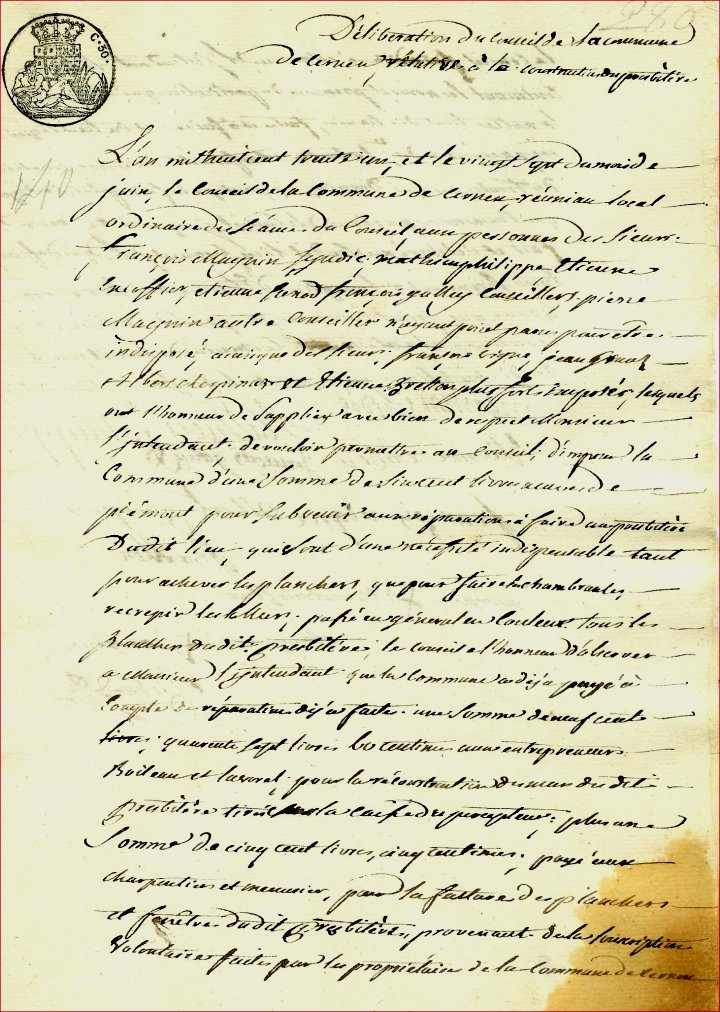 C. 50.
280
Déliberation du Conseil de la commune
de Cernex, rélative à la construction du presbitère
140
L'an mil huit cent trente un, et le vingt sept du mois de
juin, le Conseil de la Commune de Cernex, réuni au local
ordinaire des séances du Conseil, aux personnes des sieurs
françois Magnin Syndic, philippe Etienne
etienne françois gallay Conseillers, pierre
Magnin autre Conseiller n'ayant point paru pour être
indisposé, ainsi que des sieurs françois vigne, jean
Albert cherpinaz et Etienne plus forts imposés, lesquels
ont l'honneur de Supplier avec bien de respect Monsieur
l'jntendant, de vouloir permettre au Conseil, d'imposer la
Commune d'une Somme de Six cent livres neuves de
piémont pour Subvenir aux réparations à faire au presbitère
Du dit lieu, qui sont d'une nécéssité indispensable tant
pour achever les planchers, que pour faire les chambranles,
recrepir les Murs, passé en général en Couleur tous les
planchers du dit presbitère; le Conseil a l'honneur d'observer
a Monsieur l'jntendant que la Commune a déja payé à
Compte de réparations déja faite une Somme de neuf cent
livres quarante sept livres 60 centimes aux entrepreneurs
Boileau et lavorel pour la réconstruction du mur du dit
presbitère tirés sur la caisse du percepteur; plus une
Somme de cinq cent livres, cinq centimes, payé aux
charpentiers et menusier, pour la facture des planchers
et fenêtres du dit presbitère, provenant de la Souscription
Volontaire faite par les propriétaire de la Commune de Cernex